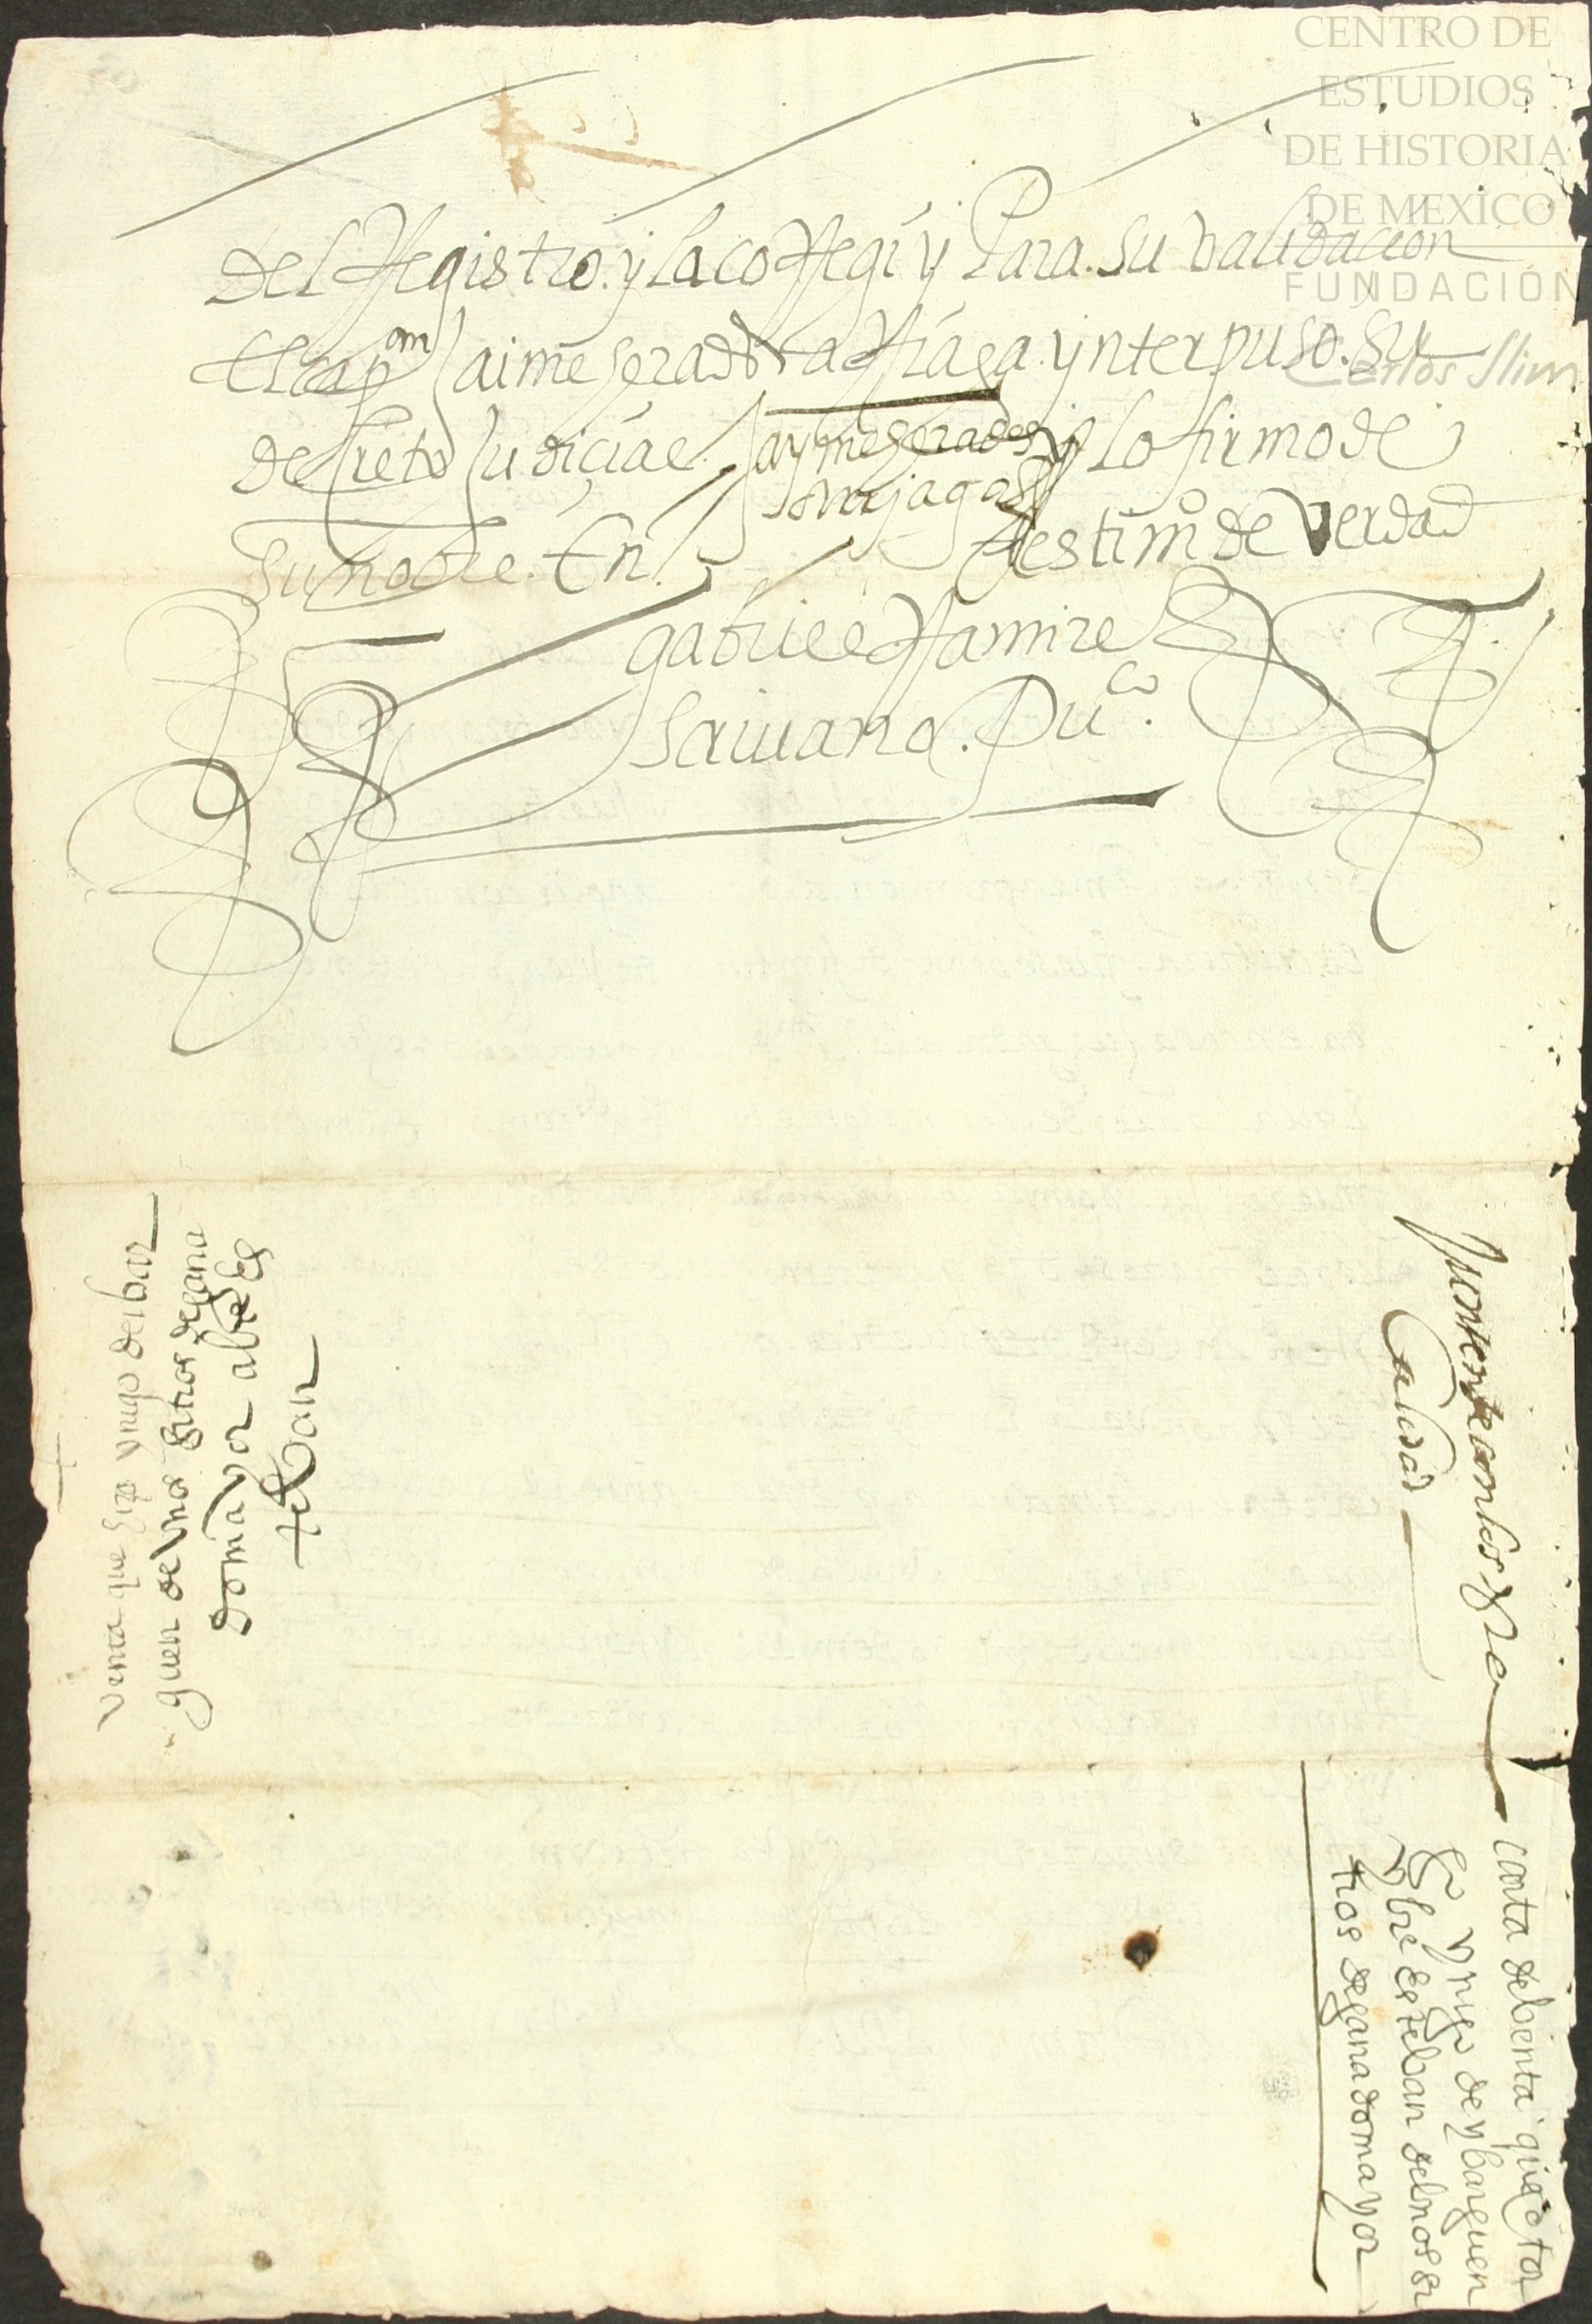 CENTRO DE
ESTUDIOS
DE HISTORIA
DE MEXICO
FUNDACIÓN
Carlos Slim
del Rregistro. y la coRregi y Para. su validacion
El capan Jaime gerados aRriaga. ynterpuso. su
decreto Judicial. Jayme gerades y lo firmo de
aRrijaga
su nobre. En. testimo de verdad
gabriel Ramirez
scriuano. Puco.
Venta que hizo ynigo de ibar
guen de Vnos sitios de gana
do mayor al bre es
teban
Calidad
carta de benta que otor
go ynigo de ybarguen
y bre esteban de vnos si
tios de ganado mayor